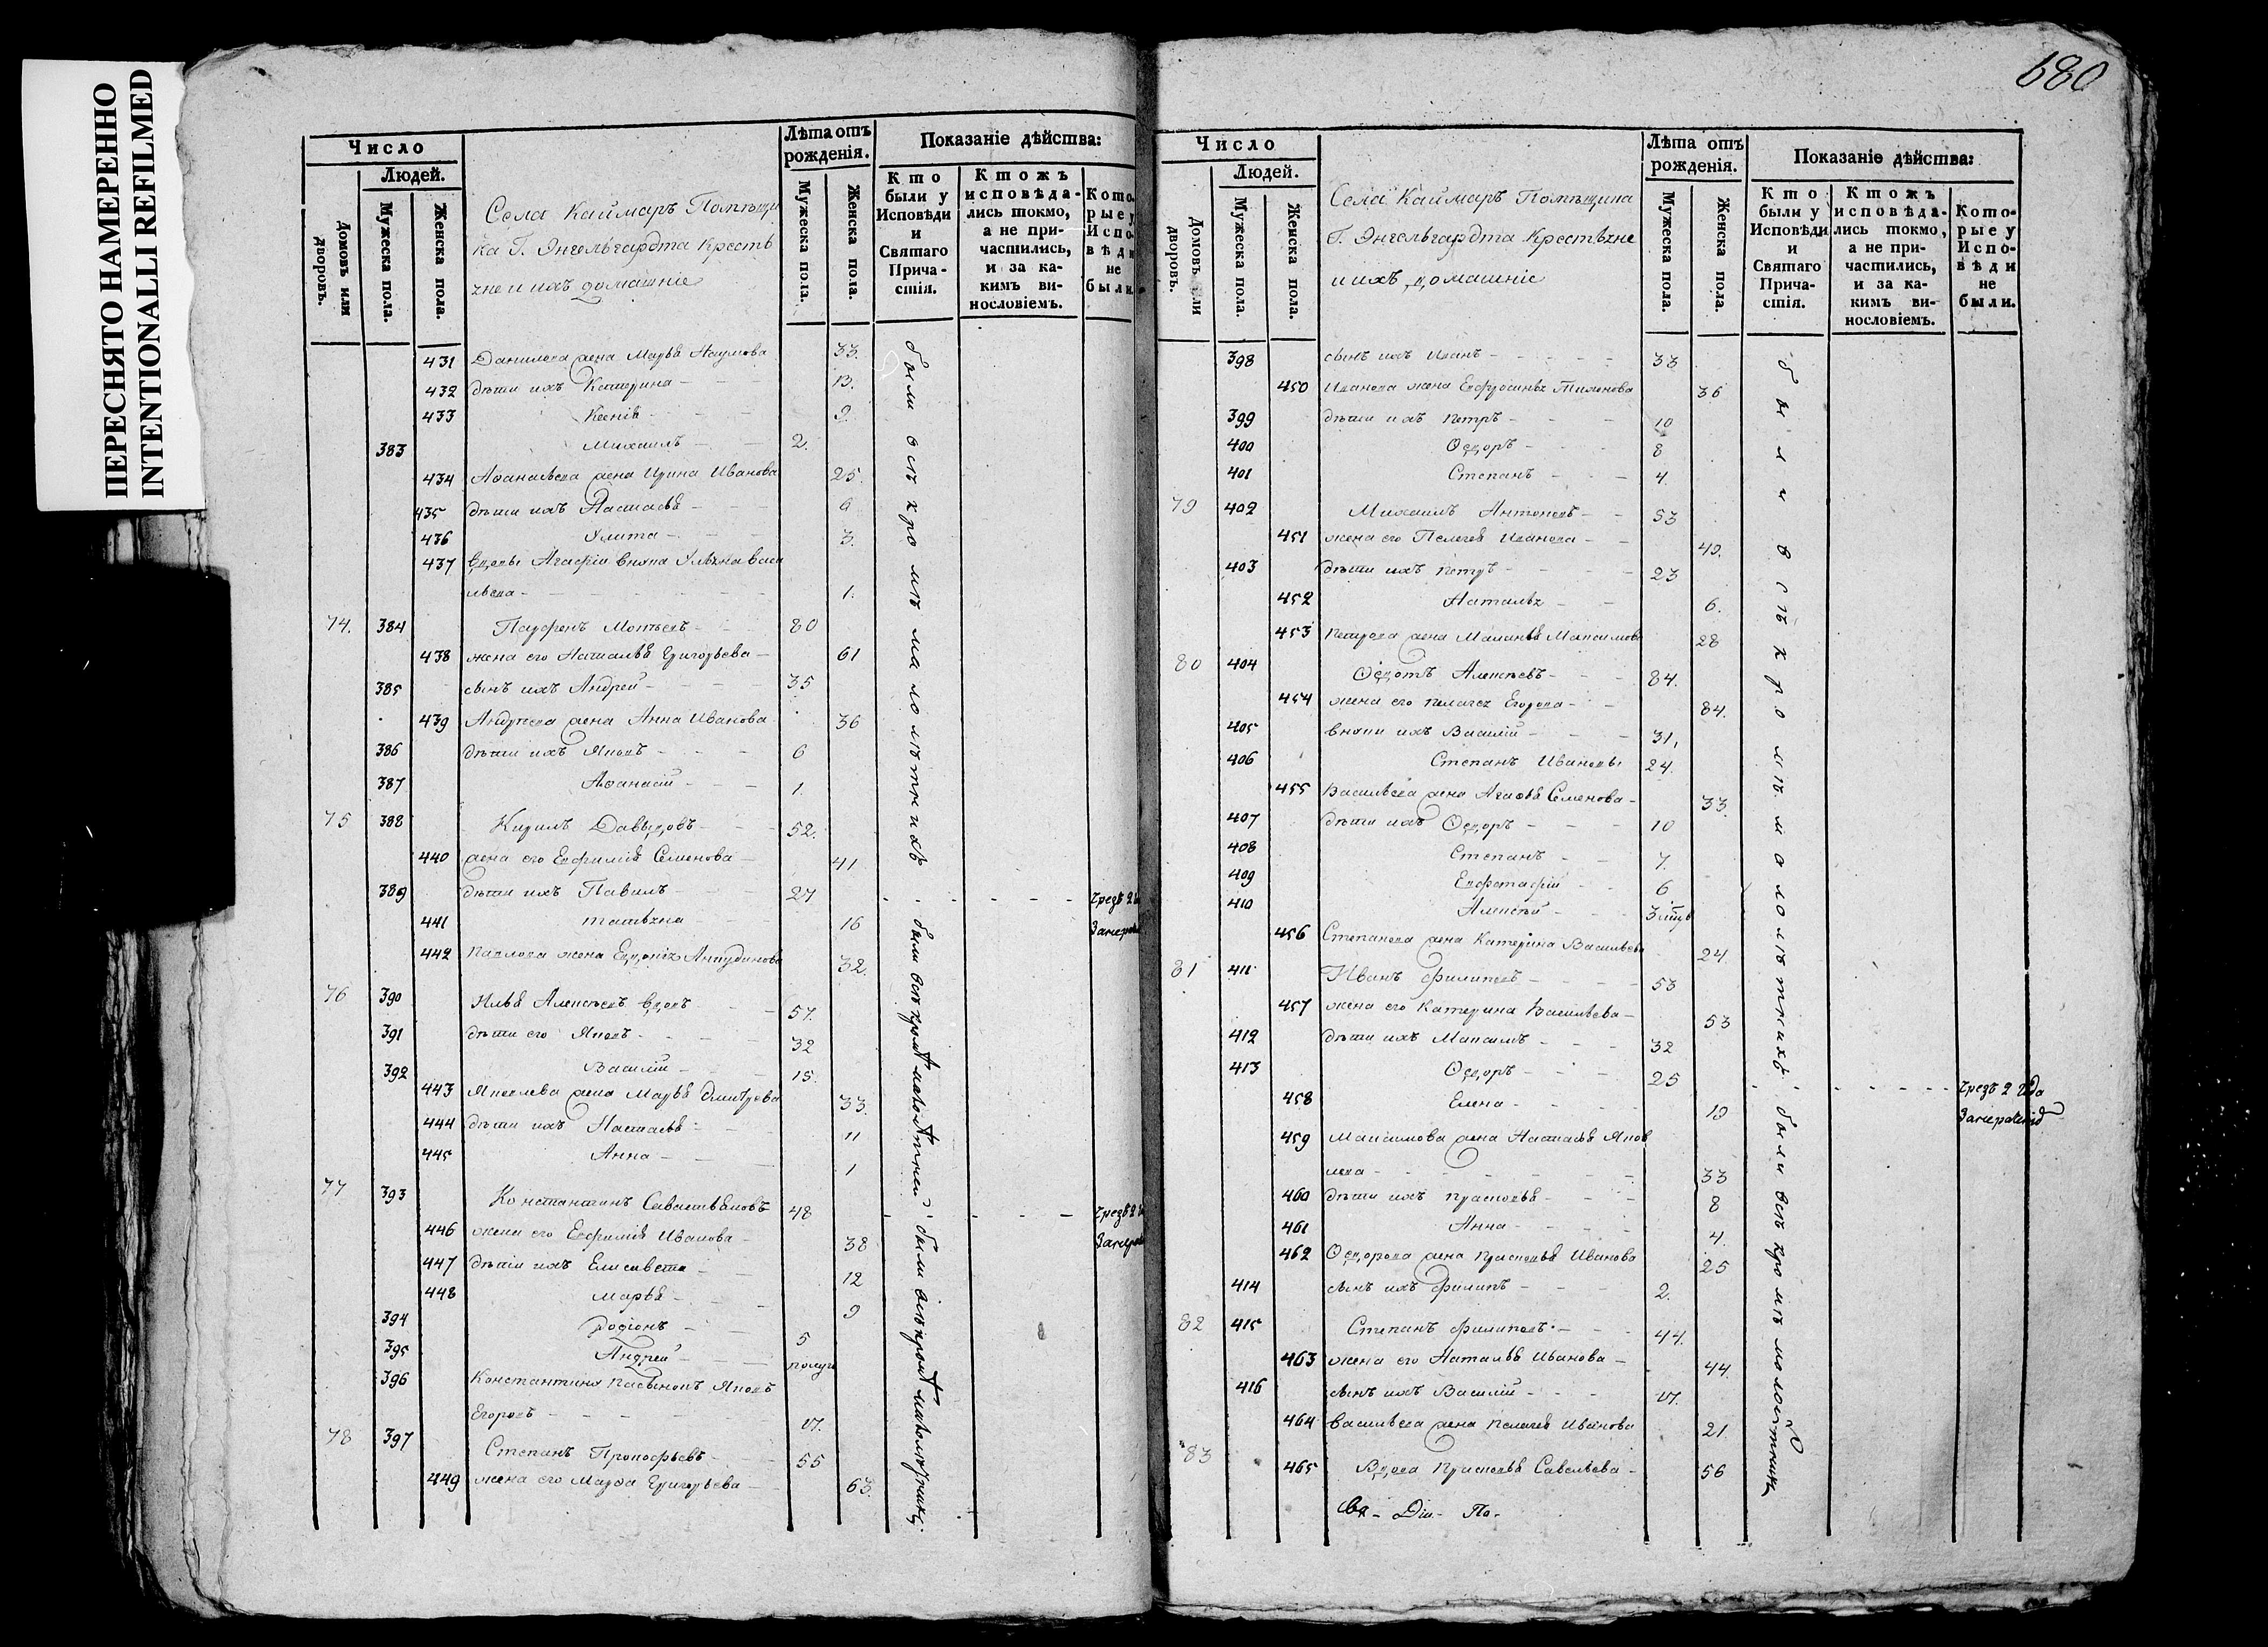 ПЕРЕСНЯТО НАМЕРЕННО
INTENTIONALLI REFILMED
680
Число
Людей.
Домовъ или дворовъ.
Мужеска пола.
Женска пола.
Села Каймаръ Помѣщи
ка Г. Энгельгардта крестъ
яне и ихъ домашніе
Лѣта отъ рожденія.
Мужеска пола.
Женска пола.
Показаніе дѣйства:
Кто были у Исповѣди и Святаго Причастія.
Ктожъ исповѣдались токмо, а не причастились, и за какимъ винословіемъ.
Которые у Исповѣди не были.
431 Данилова жена Марья Наумова 33.
432 дѣти ихъ Катерина - 13.
433 Ксенія - 9.
383 Михаилъ - 2.
434 Афанасьева жена Ирина Иванова 25.
435 дѣти ихъ Настасья - 6
436 Улита - 3.
437 вдовы Агафіи внука Ульяна Васи
льева - 1.
74. 384 Парфенъ 80
438 жена его Наталья Григорьева - 61
385 сынъ ихъ Андрей - 35
439 Андреева жена Анна Иванова 36
386 дѣти ихъ Яковъ - 6
387 Афанасій - 1.
75 388 Кирилъ Давыдовъ - 52.
440 жена его Евфимія Семенова - 41
389 дѣти ихъ Павилъ - 27
441 Татьяна 16
442 Павлова жена Евдокія 32.
76 390 Илья Алексѣевъ вдовъ - 57.
391 дѣти его Яковъ - 32
392 Василій - 15.
443 Яковлева жена Марья Дмитрева 33.
444 дѣти ихъ Настасья - 11
445 Анна - 1
77 393 Константинъ Савастьяновъ 48
446 жена его Евфимія Иванова - 38
447 дѣти ихъ Елисавета - 12
448 Марья - 9
394 Родіонъ - 5
395 Андрей - полуг
396 Константина пасынокъ Яковъ
Егоровъ - 17.
78 397 Степанъ Прокофьевъ - 55
449 жена его Марфа Григорьева - 63.
были всѣ кромѣ малолѣтнихъ
были всѣ кромѣ малолѣтней
были всѣ кромѣ малолѣтнихъ
Число
Людей.
Домовъ или дворовъ.
Мужеска пола.
Женска пола.
Села Каймаръ Помѣщика
Г. Энгельгардта крестьяне
и ихъ домашніе
Лѣта отъ рожденія.
Мужеска пола.
Женска пола.
Показаніе дѣйства:
Кто были у Исповѣди и Святаго Причастія.
Ктожъ исповѣдались токмо, а не причастились, и за какимъ винословіемъ.
Которые у Исповѣди не были.
398 сынъ ихъ Иванъ - 33
450 Иванова жена Евфросинья 36
399 дѣти ихъ Петръ - 10
400 Ѳедоръ - 8
401 Степанъ - 4.
79 402 Михаилъ Антоновъ - 53
451 жена его Пелагея Иванова - 49.
403 дѣти ихъ Петръ - 23
452 Наталья - 6.
453 Петрова жена Маланья Максимова 28
80 404 Ѳедотъ Алексѣевъ - 84.
454 жена его Пелагея Егорова - 84.
405 внуки ихъ Василій - 31,
406 Степанъ Ивановы 24.
455 Васильева жена Агафья Семенова - 33.
407 дѣти ихъ Ѳедоръ - 10
408 Степанъ - 7.
409 Евстафій - 6
410 Алексѣй - 3
456 Степанова жена Катерина Васильева 24
81 411 Иванъ Филиповъ - 53
457 жена его Катерина Васильева - 53
412 дѣти ихъ Максимъ - 32
413 Ѳедоръ - 25
458 Елена - 19
459 Максимова жена Настасья Яков
лева - 33
460 дѣти ихъ Прасковья - 8
461 Анна - 4.
462 Ѳедорова жена Прасковья Иванова 25
414 сынъ ихъ Филипъ - 2.
82 415 Степанъ Филиповъ - 44.
463 жена его Наталья Иванова - 44.
416 сынъ ихъ Василій - 17.
464 Васильева жена Пелагея Иванова 21.
83 465 Вдова Прасковья Савельева - 56
были всѣ кромѣ малолѣтнихъ
были всѣ кромѣ малолѣтнихъ
чрезъ 2 года